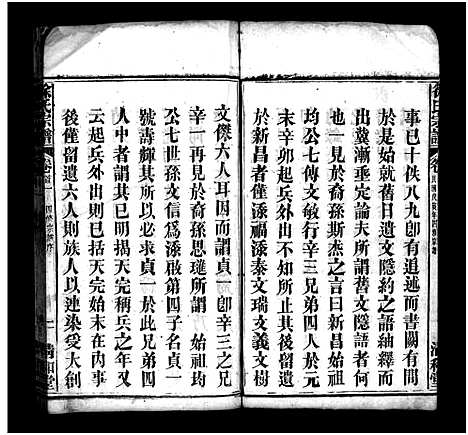 事已十佚八九卽有追述而書闕有間
於是始就舊日遺文隱約之語紬繹而
出冀漸垂定論夫所謂舊文隱語者何
也一見於裔孫斯杰之言曰新昌始祖
均公七傳文敏行辛三兄弟四人於元
末辛卯起兵外出不知所止其後留遺
於新昌者僅添泰文瑞文義文樹
文傑六人耳因而謂貞一卽辛三之兄
辛一再見於裔孫思璉所謂 始祖均
公七世孫文信爲添啟第四子名貞一
號壽輝其所以必求貞一於兄弟四
人中者謂其已明揭天完稱兵之年又
云起兵外出則已括天完始末在內事
後僅留遺六人則族人以連染受大創
徐氏宗譜
卷首
清和堂